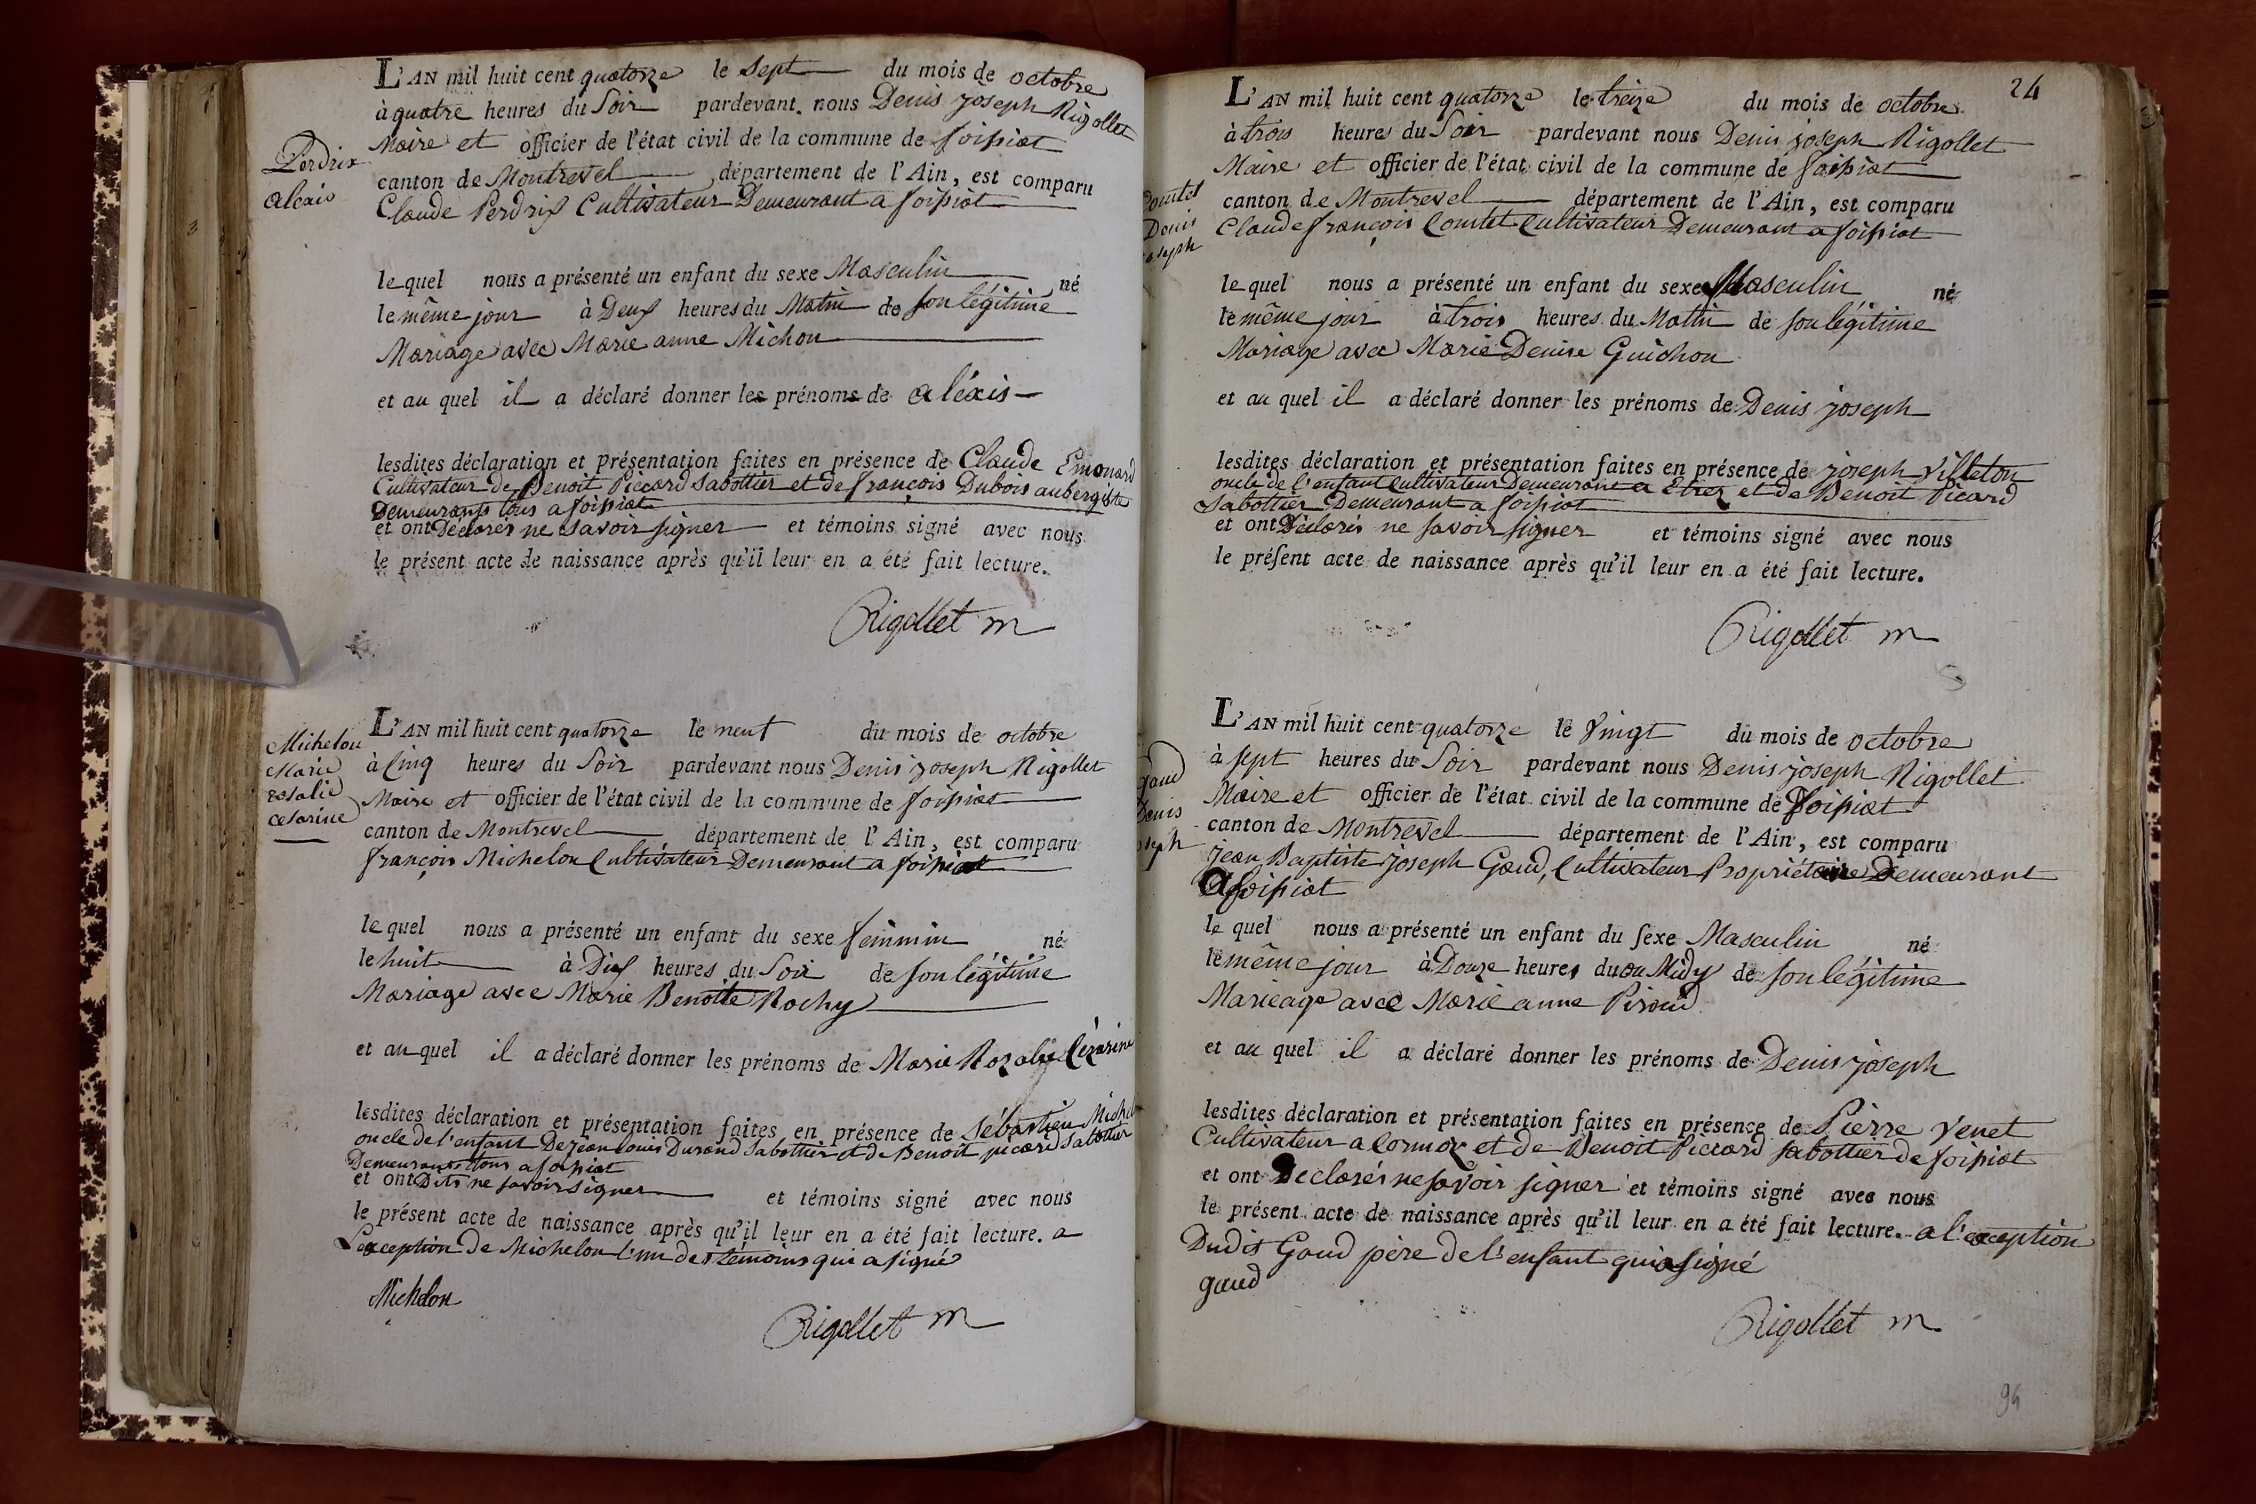 Perdrix
alexis
L'AN mil huit cent quatorze le sept du mois de octobre
à quatre heures du Soir pardevant nous Denis joseph Rigollet
Maire et officier de l'état civil de la commune de foissiat
canton de Montrevel département de l'Ain, est comparu
Claude Perdrix Cultivateur Demeurant a foissiat
le quel nous a présenté un enfant du sexe Masculin né
le même jour à Deux heures du Matin de son légitime
Mariage avec Marie anne Michon
et au quel il a déclaré donner les prénoms de aléxis
lesdites déclaration et présentation faites en présence de Claude Emonard
Cultivateur de Benoit Piccard Sabottier et de françois Dubois aubergiste
Demeurants tous a foissiat
et ont Déclarés ne Savoir signer et témoins signé avec nous
le présent acte de naissance après qu'il leur en a été fait lecture.
Rigollet m
Michelon
Marie
rosalie
cesarine
L'AN mil huit cent quatorze le neuf du mois de octobre
à Cinq heures du Soir pardevant nous Denis joseph Rigollet
Maire et officier de l'état civil de la commune de foissiat
canton de Montrevel département de l'Ain, est comparu
françois Michelon Cultivateur Demeurant a foissiat
le quel nous a présenté un enfant du sexe feminin né
le huit à Dix heures du Soir de son légitime
Mariage avec Marie Benoite Rochy
et au quel il a déclaré donner les prénoms de Marie Rozalie Cézarine
lesdites déclaration et présentation faites en présence de Sébastien Michelon
oncle de l'enfant De jean louis Durand Sabottier et de Benoit picard Sabottier
Demeurants tous a foissiat
et ont Dits ne savoir signer et témoins signé avec nous
le présent acte de naissance après qu'il leur en a été fait lecture. a
L'exception de Michelon l'un des témoins qui a signé
Michelon
Rigollet m
24
Comtet
Denis
joseph
L'AN mil huit cent quatorze le treize du mois de octobre
à trois heures du Soir pardevant nous Denis joseph Rigollet
Maire et officier de l'état civil de la commune de foissiat
canton de Montrevel département de l'Ain, est comparu
Claude françois Comtet Cultivateur Demeurant a foissiat
le quel nous a présenté un enfant du sexe Masculin né
le même jour à trois heures du Mattin de son légitime
Mariage avec Marie Denise Guichon
et au quel il a déclaré donner les prénoms de Denis joseph
lesdites déclaration et présentation faites en présence de joseph Villeton
oncle de l'enfant Cultivateur Demeurant a Etrez et de Benoit Picard
Sabottier Demeurant a foissiat
et ont Déclarés ne savoir signer et témoins signé avec nous
le présent acte de naissance après qu'il leur en a été fait lecture.
Rigollet m
gaud
Denis
joseph
L'AN mil huit cent quatorze le Vingt du mois de octobre
à sept heures du Soir pardevant nous Denis joseph Rigollet
Maire et officier de l'état civil de la commune de foissiat
canton de Montrevel département de l'Ain, est comparu
jean Baptiste joseph Gaud, Cultivateur Propriétaire Demeurant
a foissiat
le quel nous a présenté un enfant du sexe Masculin né
le même jour à Douze heures du ou Midy de son légitime
Marieage avec Marie anne Piroud
et au quel il a déclaré donner les prénoms de Denis joseph
lesdites déclaration et présentation faites en présence de Pierre Venet
Cultivateur a Cormoz et de Benoit Piccard sabottier de foissiat
et ont Declarés ne savoir signer et témoins signé avec nous
le présent acte de naissance après qu'il leur en a été fait lecture. a l'exception
Dudit Gaud père de l'enfant qui a signé
gaud
Rigollet m
94